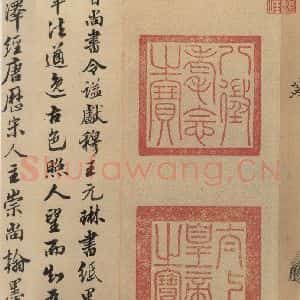 八徵耄念之寶
太上皇帝之寶
尚書令謚獻穆王元琳書紙墨
筆法遒逸古色照人望而知為
澤經唐歷宋人主崇尚翰墨
Shufawang.CN